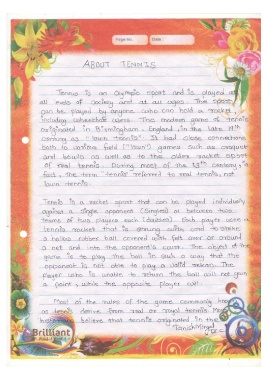 Page No.
Date
ABOUT TENNIS
Tennis is an olympic sport and is played at
all ends of society and at all ages. The sport
can be played by anyone who can hold a racket,
including wheelchair users. The modern game of tennis
originated in Birmingham, England, in the late 19th
century as "lawn tennis". It had close connections
both to various field ("lawn") games such as croquet
and bowls as well as to the older racket sport
of real tennis. During most of the 19th century
fact, the term "tennis" referred to real tennis, not
lawn tennis.
Tennis is a racket sport that can be played individually
against a single opponent (singles) or between two
teams of two players each (doubles). Each player uses a
tennis racket that is strung with cord to strike
a hollow rubber ball covered with felt over or around
a net and into the opponent's court. The object of the
game is to play the ball in such a way that the
opponent is not able to play a valid return. The
player who is unable to return the ball will not gain
a point, while the opposite player will.
Most of the rules of the game commonly known
as tennis derive from real or royal tennis. Most
believe that tennis originated in the
Brilliant